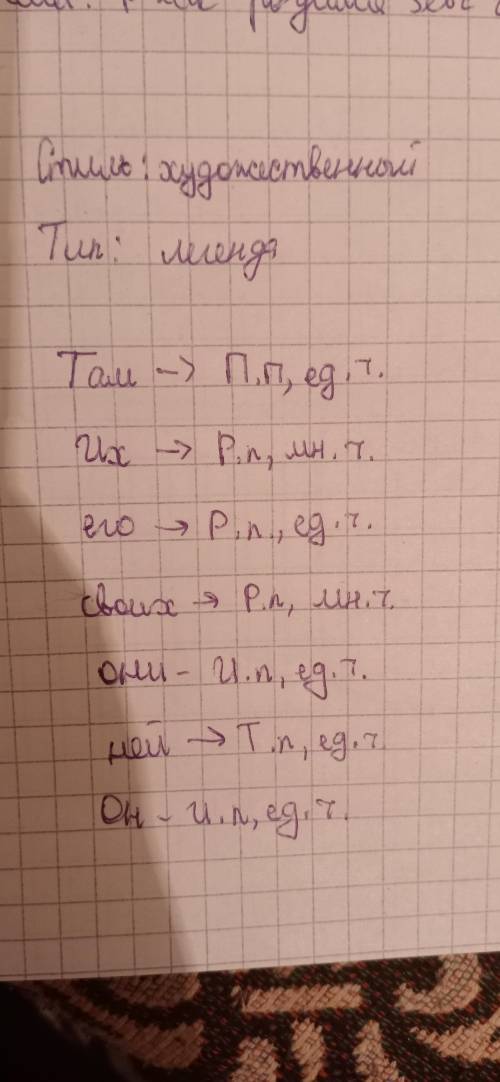 Стиль: художественный
Тип: легенда
Там -> П.п, ед.ч.
Их -> Р.п, мн.ч.
его -> Р.п., ед.ч.
своих -> Р.п, мн.ч.
они - И.п, ед.ч.
ней -> Т.п, ед.ч
Он - И.п, ед.ч.